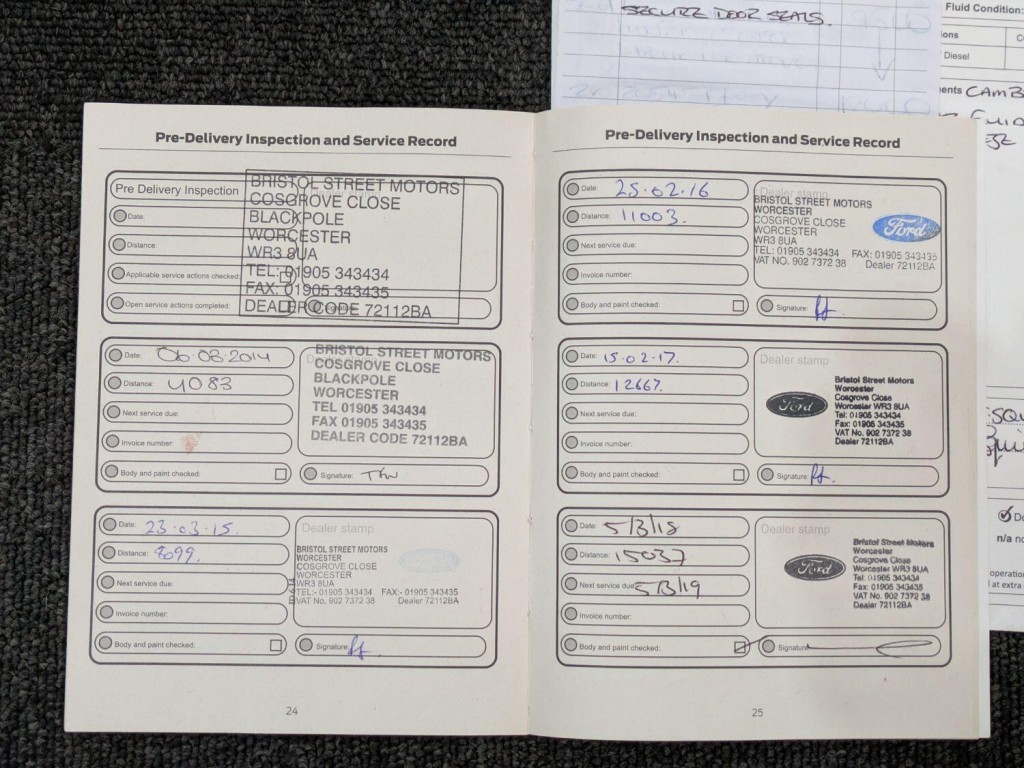 SECURE DOOR SEALS.
Fluid Condition:
Diesel
CAMB
Pre-Delivery Inspection and Service Record
Pre Delivery Inspection
Date:
Distance:
Applicable service actions checked:
Open service actions completed:
BRISTOL STREET MOTORS
COSGROVE CLOSE
BLACKPOLE
WORCESTER
WR3 8UA
TEL: 01905 343434
FAX: 01905 343435
DEALER CODE 72112BA
Date: 06-03-2014
Distance: 4083
Next service due:
Invoice number:
Body and paint checked:
BRISTOL STREET MOTORS
COSGROVE CLOSE
BLACKPOLE
WORCESTER
TEL 01905 343434
FAX 01905 343435
DEALER CODE 72112BA
Signature:
Date: 23-03-15.
Distance: 8099.
Next service due:
Invoice number:
Body and paint checked:
Dealer stamp
BRISTOL STREET MOTORS
WORCESTER
COSGROVE CLOSE
WORCESTER
WR3 8UA
TEL:- 01905 343434 FAX:- 01905 343435
VAT No. 902 7372 38 Dealer 72112BA
Signature:
24
Pre-Delivery Inspection and Service Record
Date: 25-02-16
Distance: 11003.
Next service due:
Invoice number:
Body and paint checked:
Dealer stamp
BRISTOL STREET MOTORS
WORCESTER
COSGROVE CLOSE
WORCESTER
WR3 8UA
TEL: 01905 343434 FAX: 01905 343435
VAT NO. 902 7372 38 Dealer 72112BA
Ford
Signature:
Date: 15-02-17.
Distance: 12667.
Next service due:
Invoice number:
Body and paint checked:
Dealer stamp
Ford
Bristol Street Motors
Worcester
Cosgrove Close
Worcester WR3 8UA
Tel: 01905 343434
Fax: 01905 343435
VAT No. 902 7372 38
Dealer 72112BA
Signature:
Date: 5/3/18
Distance: 15037
Next service due: 5/3/19
Invoice number:
Body and paint checked:
Dealer stamp
Ford
Bristol Street Motors
Worcester
Cosgrove Close
Worcester WR3 8UA
Tel: 01905 343434
Fax: 01905 343435
VAT No. 902 7372 38
Dealer 72112BA
Signature:
25
n/a